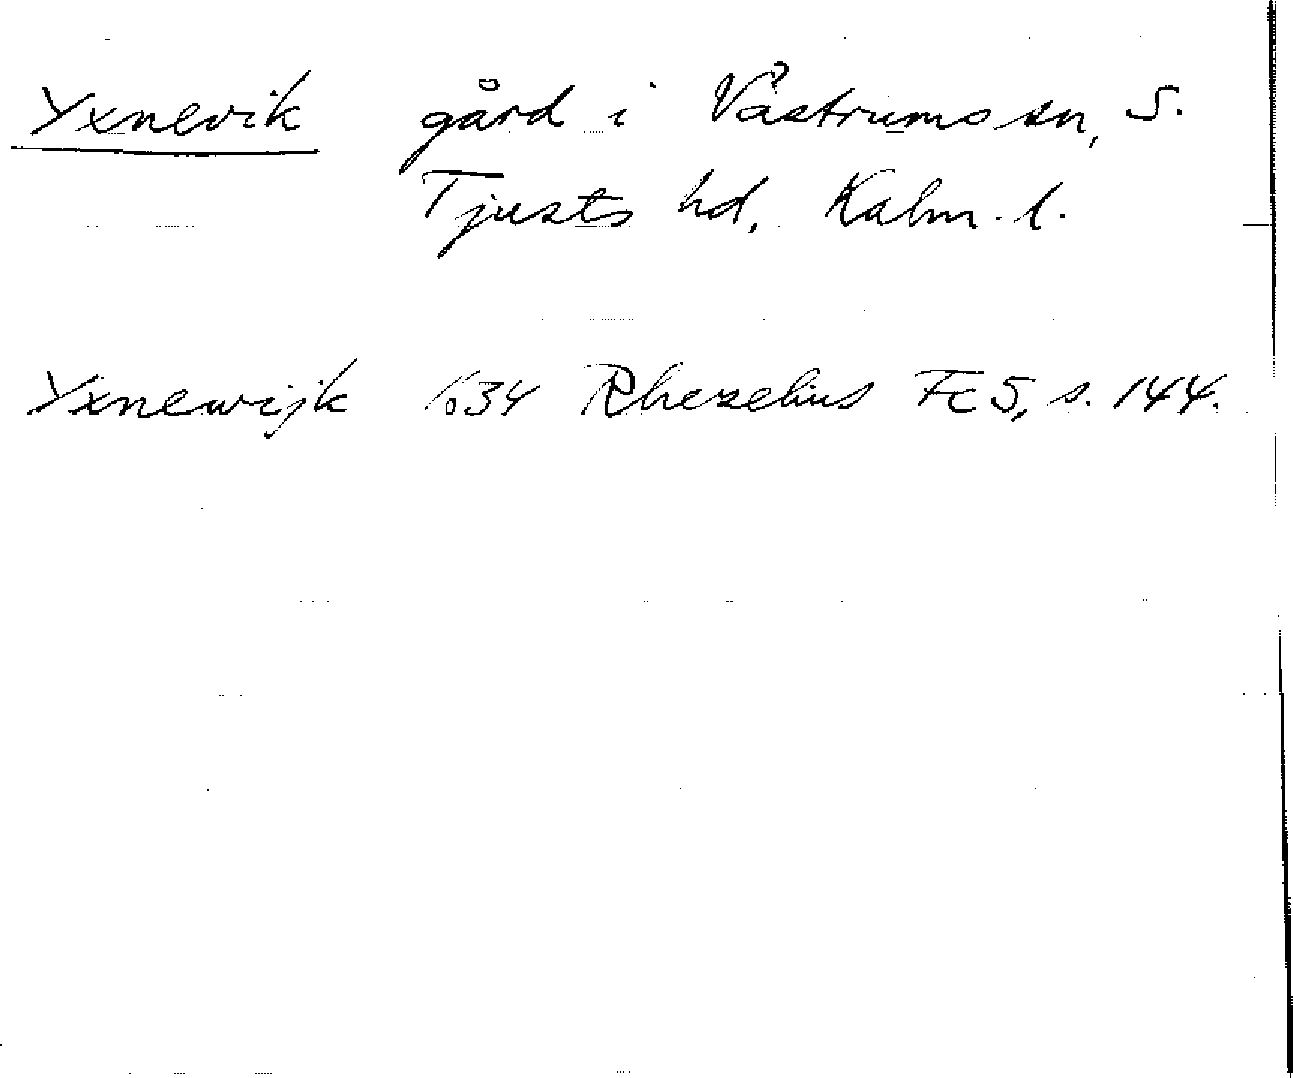 Yxnevik gård i Västrums sn, S.
Tjusts hd, Kalm. l.
Yxnewijk 1634 Rhezelius Fc5, s. 144.